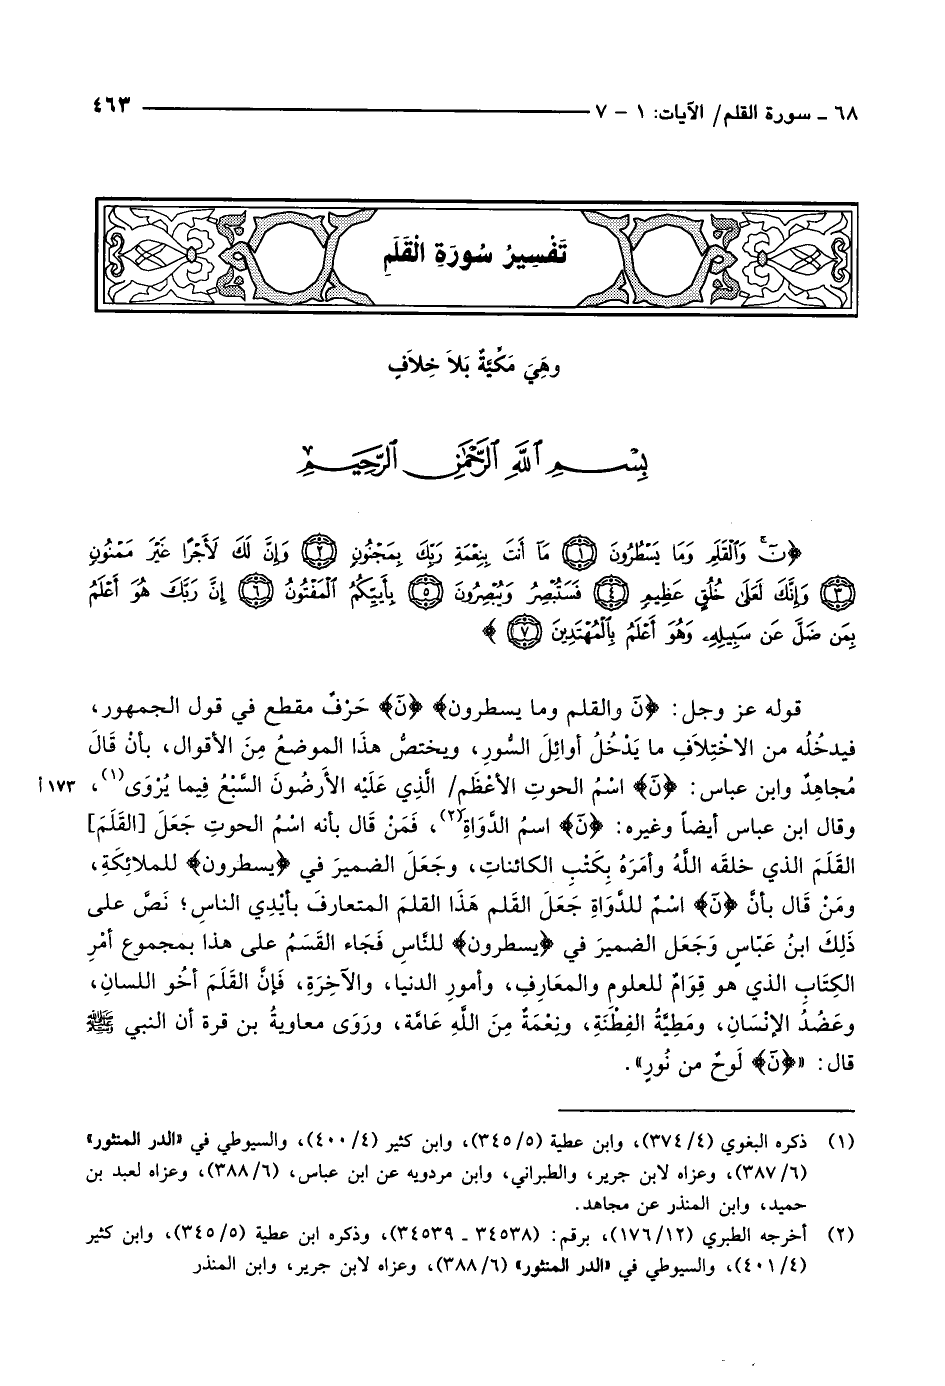 ٦٨ ـ سورة القلم/ الآيات: ١ - ٧ ٤٦٣
تَفْسِيرُ سُورَةِ الْقَلَمِ
وهَيَ مَكِّيَّةٌ بَلاَ خِلاَفٍ
بِسْمِ ٱللَّهِ ٱلرَّحْمَٰنِ ٱلرَّحِيمِ
﴿نٓ ۚ وَٱلْقَلَمِ وَمَا يَسْطُرُونَ ﴿١﴾ مَآ أَنتَ بِنِعْمَةِ رَبِّكَ بِمَجْنُونٍ ﴿٢﴾ وَإِنَّ لَكَ لَأَجْرًا غَيْرَ مَمْنُونٍ
﴿٣﴾ وَإِنَّكَ لَعَلَىٰ خُلُقٍ عَظِيمٍ ﴿٤﴾ فَسَتُبْصِرُ وَيُبْصِرُونَ ﴿٥﴾ بِأَييِّكُمُ ٱلْمَفْتُونُ ﴿٦﴾ إِنَّ رَبَّكَ هُوَ أَعْلَمُ
بِمَن ضَلَّ عَن سَبِيلِهِۦ وَهُوَ أَعْلَمُ بِٱلْمُهْتَدِينَ ﴿٧﴾ ﴾
قوله عز وجل: ﴿نَ والقلم وما يسطرون﴾ ﴿نَ﴾ حَرْفٌ مقطع في قول الجمهور،
فيدخُلُه من الاخْتِلاَفِ ما يَدْخُلُ أوائِلَ السُّورِ، ويختصُّ هذَا الموضعُ مِنَ الأقوال، بأنْ قَالَ
مُجاهِدٌ وابن عباس: ﴿نَ﴾ اسْمُ الحوتِ الأعْظَمِ/ الَّذِي عَلَيْه الأَرضُونَ السَّبْعُ فِيما يُرْوَى(١)، ١٧٣ أ
وقال ابن عباس أيضاً وغيره: ﴿نَ﴾ اسمُ الدَّوَاةِ(٢)، فَمَنْ قَال بأنه اسْمُ الحوتِ جَعَلَ [القَلَمَ]
القَلَمَ الذي خلقَه اللَّهُ وأمَرَهُ بِكَتْبِ الكائناتِ، وجَعَلَ الضميرَ في ﴿يسطرون﴾ للملائِكَةِ،
ومَنْ قَال بأنَّ ﴿نَ﴾ اسْمٌ للدَّوَاةِ جَعَلَ القَلم هَذَا القلمَ المتعارفَ بأيْدِي الناسِ؛ نَصَّ على
ذَلِكَ ابنُ عَبّاسٍ وَجَعَل الضميرَ في ﴿يسطرون﴾ للنَّاسِ فَجَاء القَسَمُ على هذا بمجموعِ أمْرِ
الكِتَابِ الذي هو قِوَامٌ للعلومِ والمعَارِفِ، وأمورِ الدنيا، والآخِرَةِ، فَإنَّ القَلَمَ أخُو اللسانِ،
وعَضُدُ الإنْسَانِ، ومَطِيَّةُ الفِطْنَةِ، ونِعْمَةٌ مِنَ اللَّهِ عَامَّة، ورَوَى معاويةُ بن قرة أن النبي ﷺ
قال: «﴿نَ﴾ لَوحٌ من نُورٍ».
(١) ذكره البغوي (٣٧٤/٤)، وابن عطية (٣٤٥/٥)، وابن كثير (٤٠٠/٤)، والسيوطي في «الدر المنثور»
(٣٨٧/٦)، وعزاه لابن جرير، والطبراني، وابن مردويه عن ابن عباس، (٣٨٨/٦)، وعزاه لعبد بن
حميد، وابن المنذر عن مجاهد.
(٢) أخرجه الطبري (١٧٦/١٢)، برقم: (٣٤٥٣٨ ـ ٣٤٥٣٩)، وذكره ابن عطية (٣٤٥/٥)، وابن كثير
(٤٠١/٤)، والسيوطي في «الدر المنثور» (٣٨٨/٦)، وعزاه لابن جرير، وابن المنذر